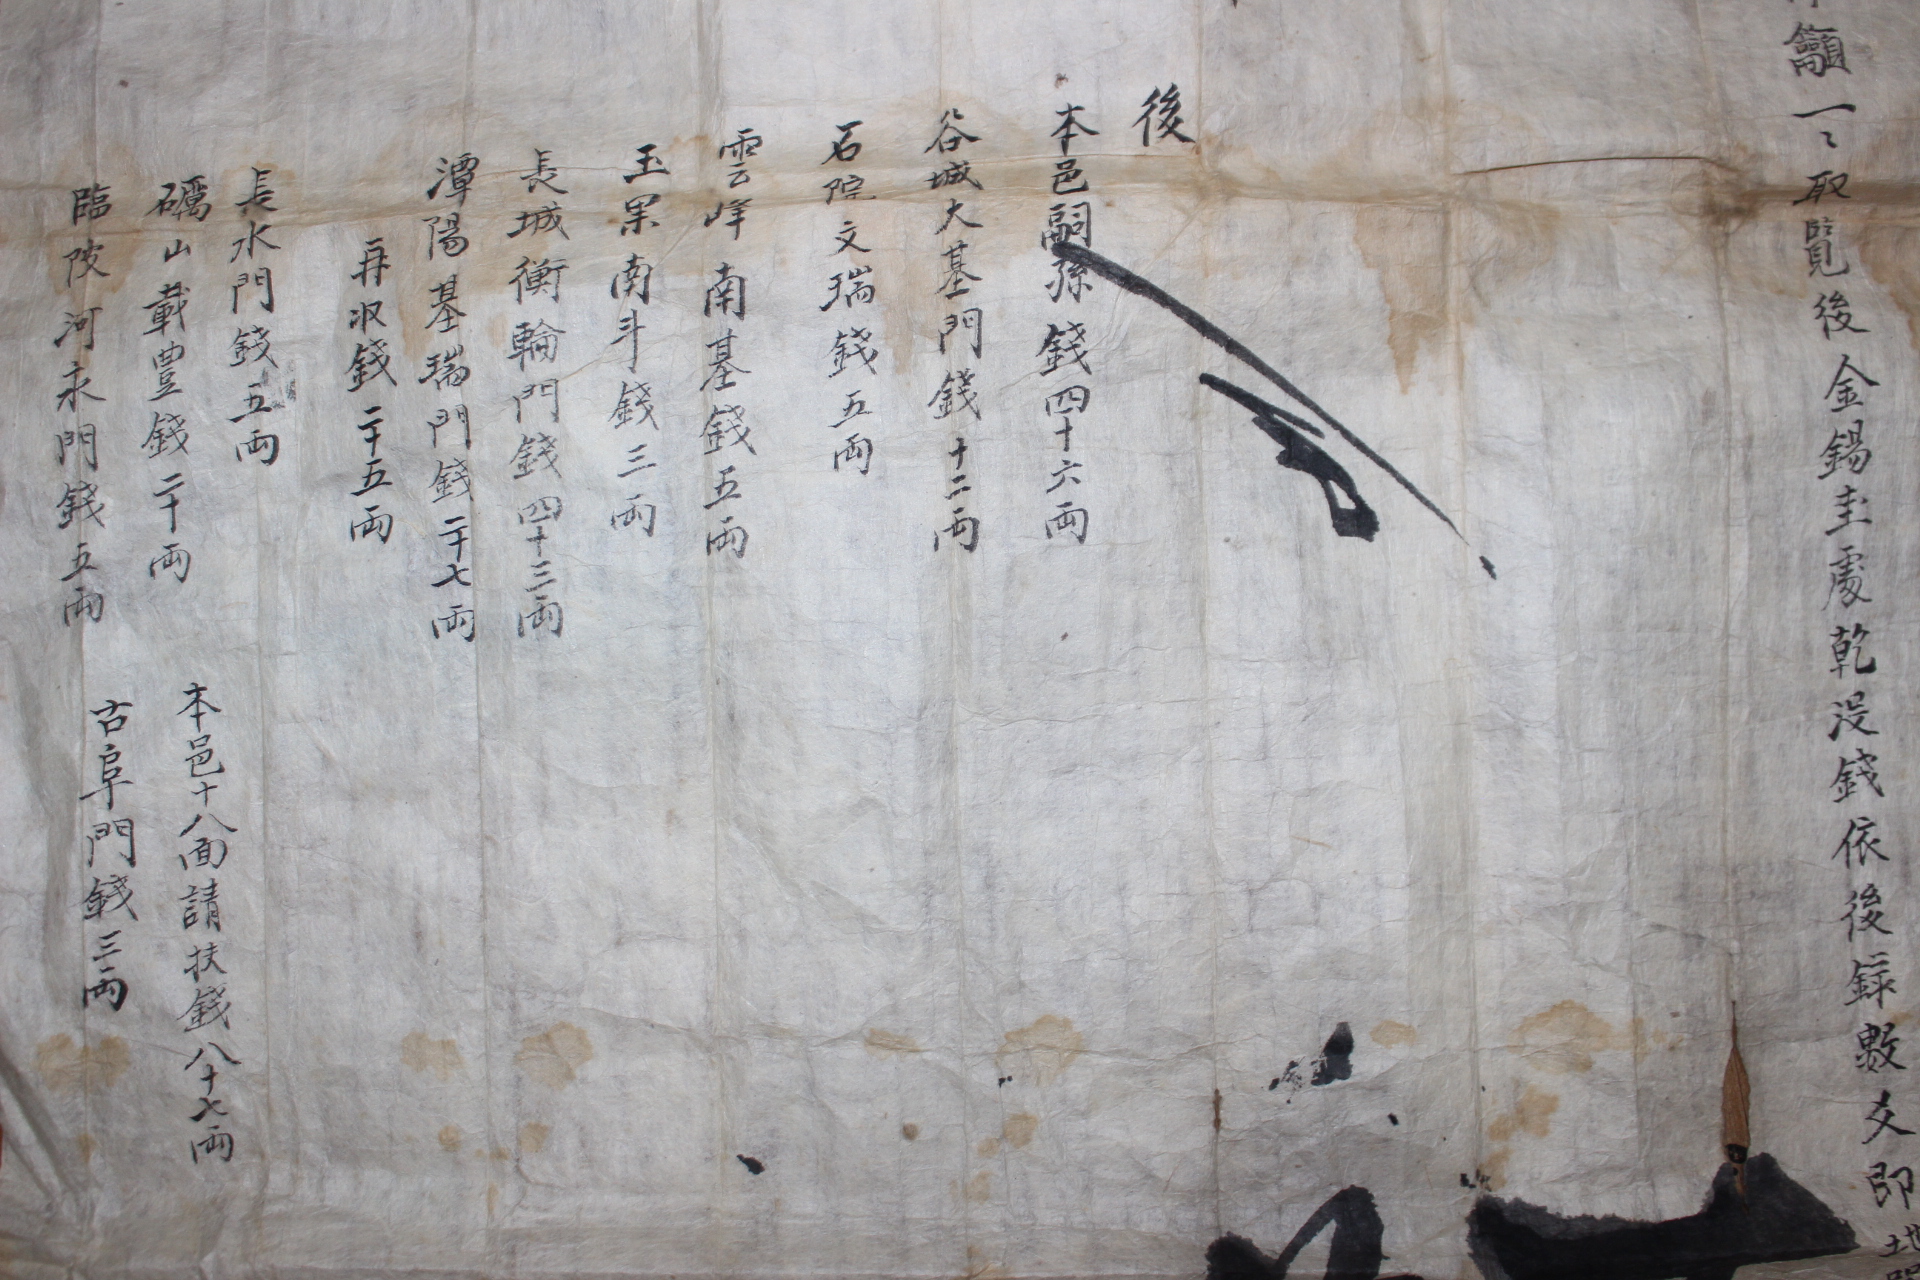 籲一〻取覽後金錫圭處乾沒錢依後錄數爻卽地
後
本邑嗣孫錢四十六両
谷城大基門錢十二両
石院文瑞錢五両
雲峰南基錢五両
玉果南斗錢三両
長城衡輪門錢四十三両
潭陽基瑞門錢二十七両
再収錢二十五両
長水門錢五両
礪山載豊錢二十両
本邑十八面請扶錢八十七両
臨陂河永門錢五両
古阜門錢三両